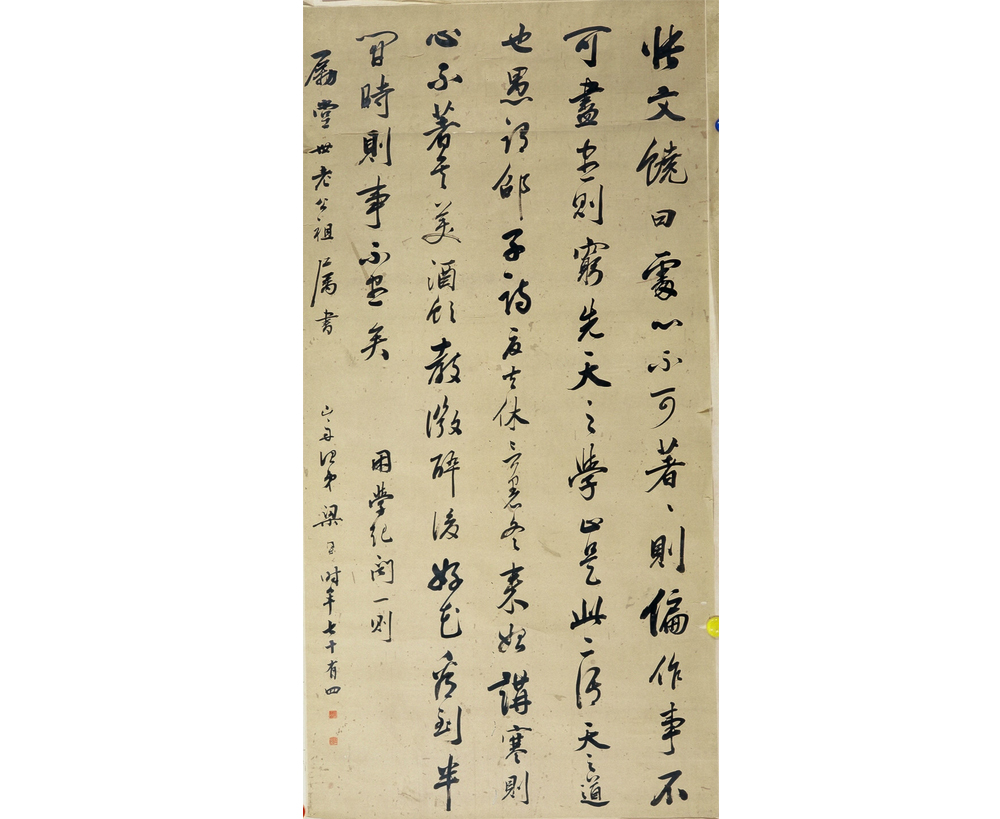 張文饒曰處心不可著、則偏作事不
可盡、則窮先天之學止是此二語天之道
也愚謂邵子詩夏去休言暑冬來始講寒則
心不著矣美酒飲教微醉後好花看到半
開時則事不盡矣
困學紀聞一則
勵堂世老公祖屬書
山舟治弟梁同書時年七十有四